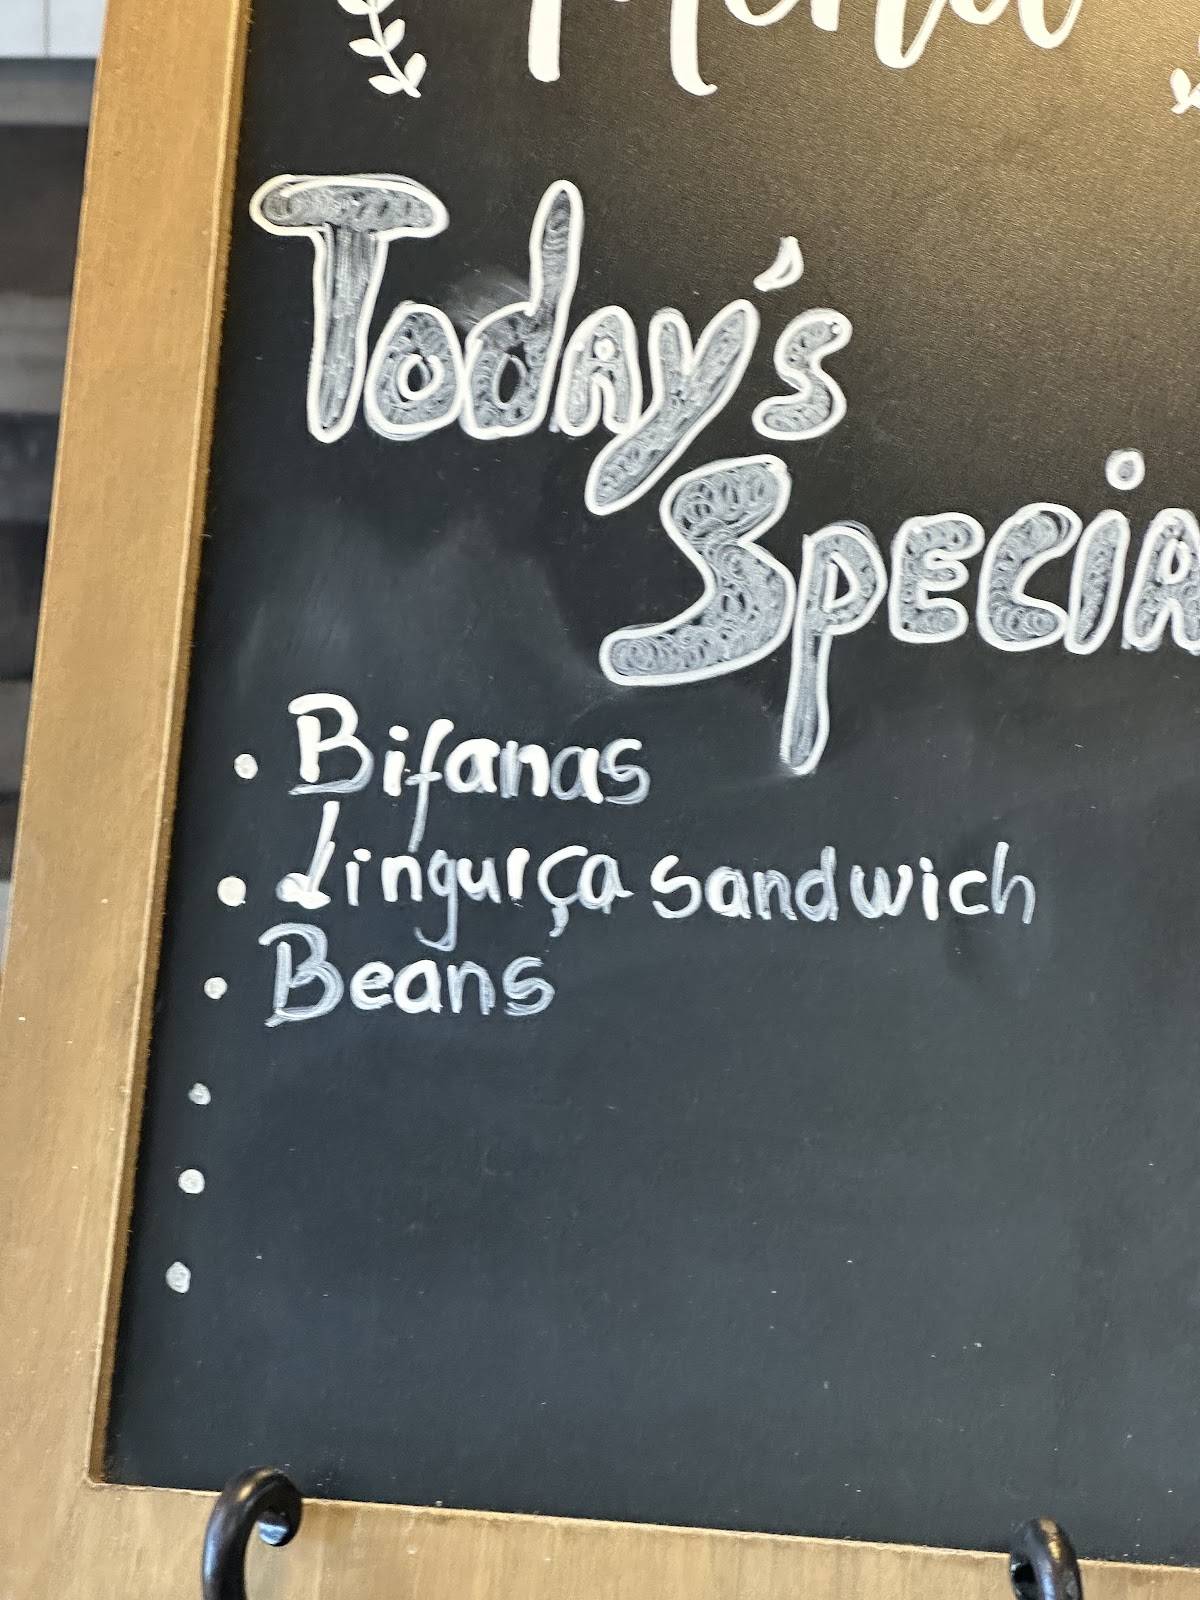 Menu
Today's
Specia
• Bifanas
• Lingurça sandwich
• Beans
•
•
•